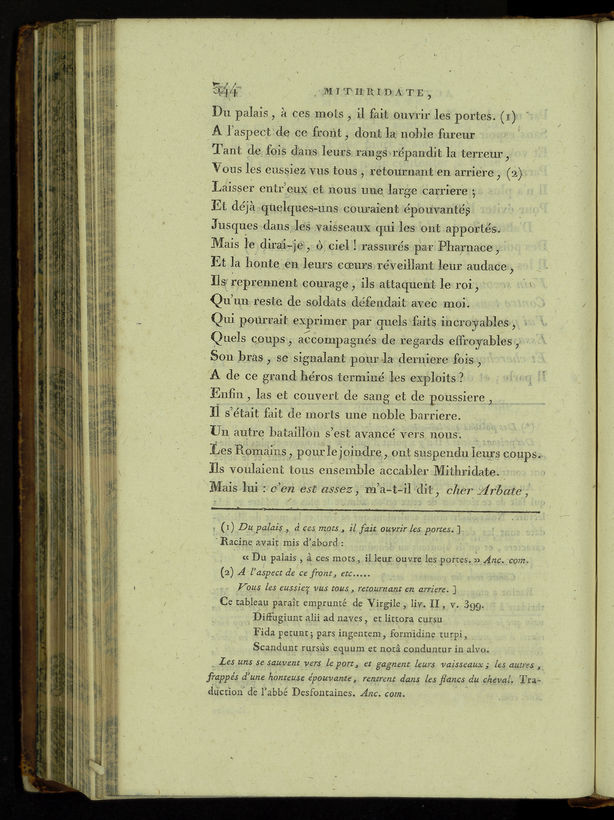 344 MITHRIDATE,
Du palais, à ces mots, il fait ouvrir les portes. (1)
A l'aspect de ce front, dont la noble fureur
Tant de fois dans leurs rangs répandit la terreur,
Vous les eussiez vus tous, retournant en arriere, (2)
Laisser entr'eux et nous une large carriere;
Et déjà quelques-uns couraient épouvantés
Jusques dans les vaisseaux qui les ont apportés.
Mais le dirai-je, ô ciel! rassurés par Pharnace,
Et la honte en leurs cœurs réveillant leur audace,
Ils reprennent courage, ils attaquent le roi,
Qu'un reste de soldats défendait avec moi.
Qui pourrait exprimer par quels faits incroyables,
Quels coups, accompagnés de regards effroyables,
Son bras, se signalant pour la derniere fois,
A de ce grand héros terminé les exploits?
Enfin, las et couvert de sang et de poussiere,
Il s'était fait de morts une noble barriere.
Un autre bataillon s'est avancé vers nous.
Les Romains, pour le joindre, ont suspendu leurs coups.
Ils voulaient tous ensemble accabler Mithridate.
Mais lui : c'en est assez, m'a-t-il dit, cher Arbate,
(1) Du palais, à ces mots, il fait ouvrir les portes. ]
Racine avait mis d'abord :
« Du palais, à ces mots, il leur ouvre les portes. » Anc. com.
(2) A l'aspect de ce front, etc.....
Vous les eussiez vus tous, retournant en arriere. ]
Ce tableau paraît emprunté de Virgile, liv. II, v. 399.
Diffugiunt alii ad naves, et littora cursu
Fida petunt; pars ingentem, formidine turpi,
Scandunt rursùs equum et notâ conduntur in alvo.
Les uns se sauvent vers le port, et gagnent leurs vaisseaux; les autres,
frappés d'une honteuse épouvante, rentrent dans les flancs du cheval. Tra-
duction de l'abbé Desfontaines. Anc. com.